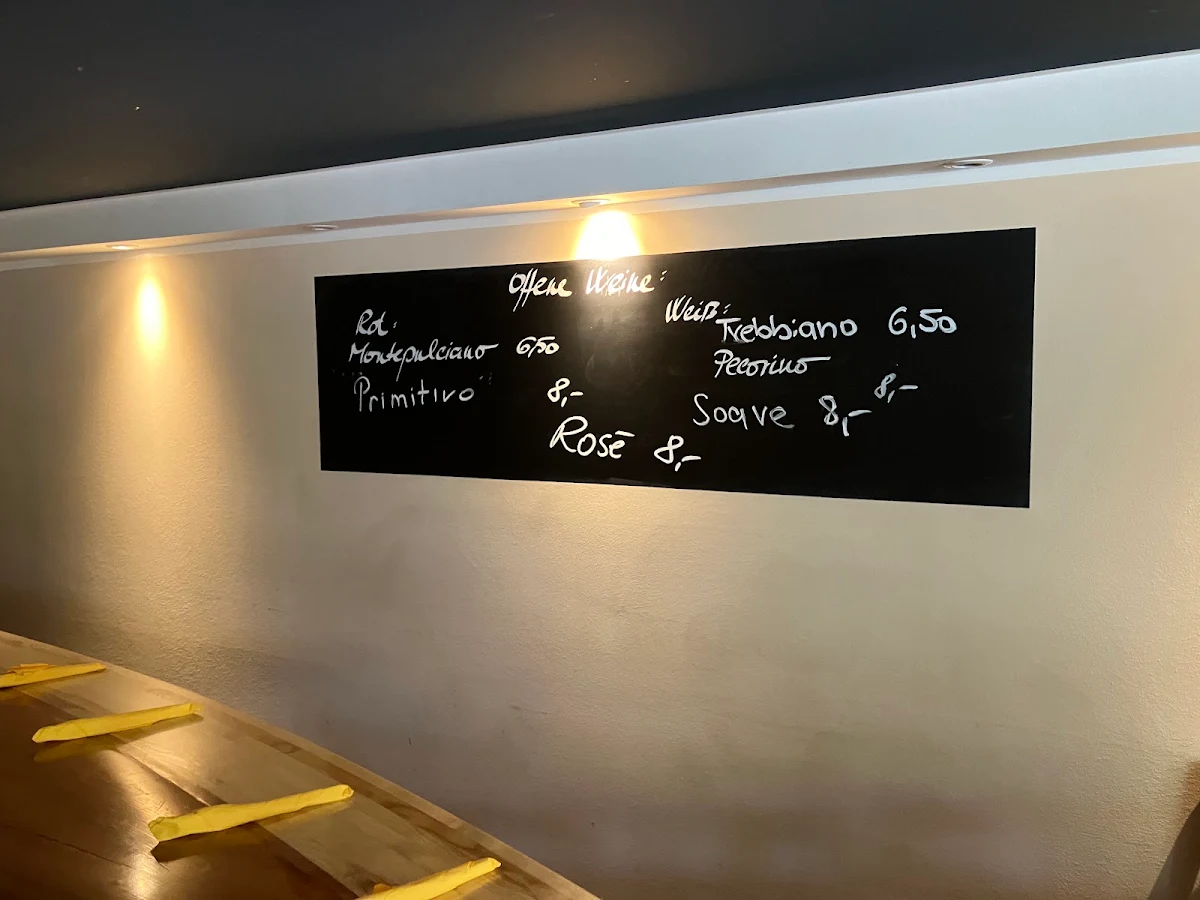 Offene Weine:
Rot:
Montepulciano 6,50
Primitivo 8,-
Rosé 8,-
Weiß:
Trebbiano 6,50
Pecorino 8,-
Soave 8,-